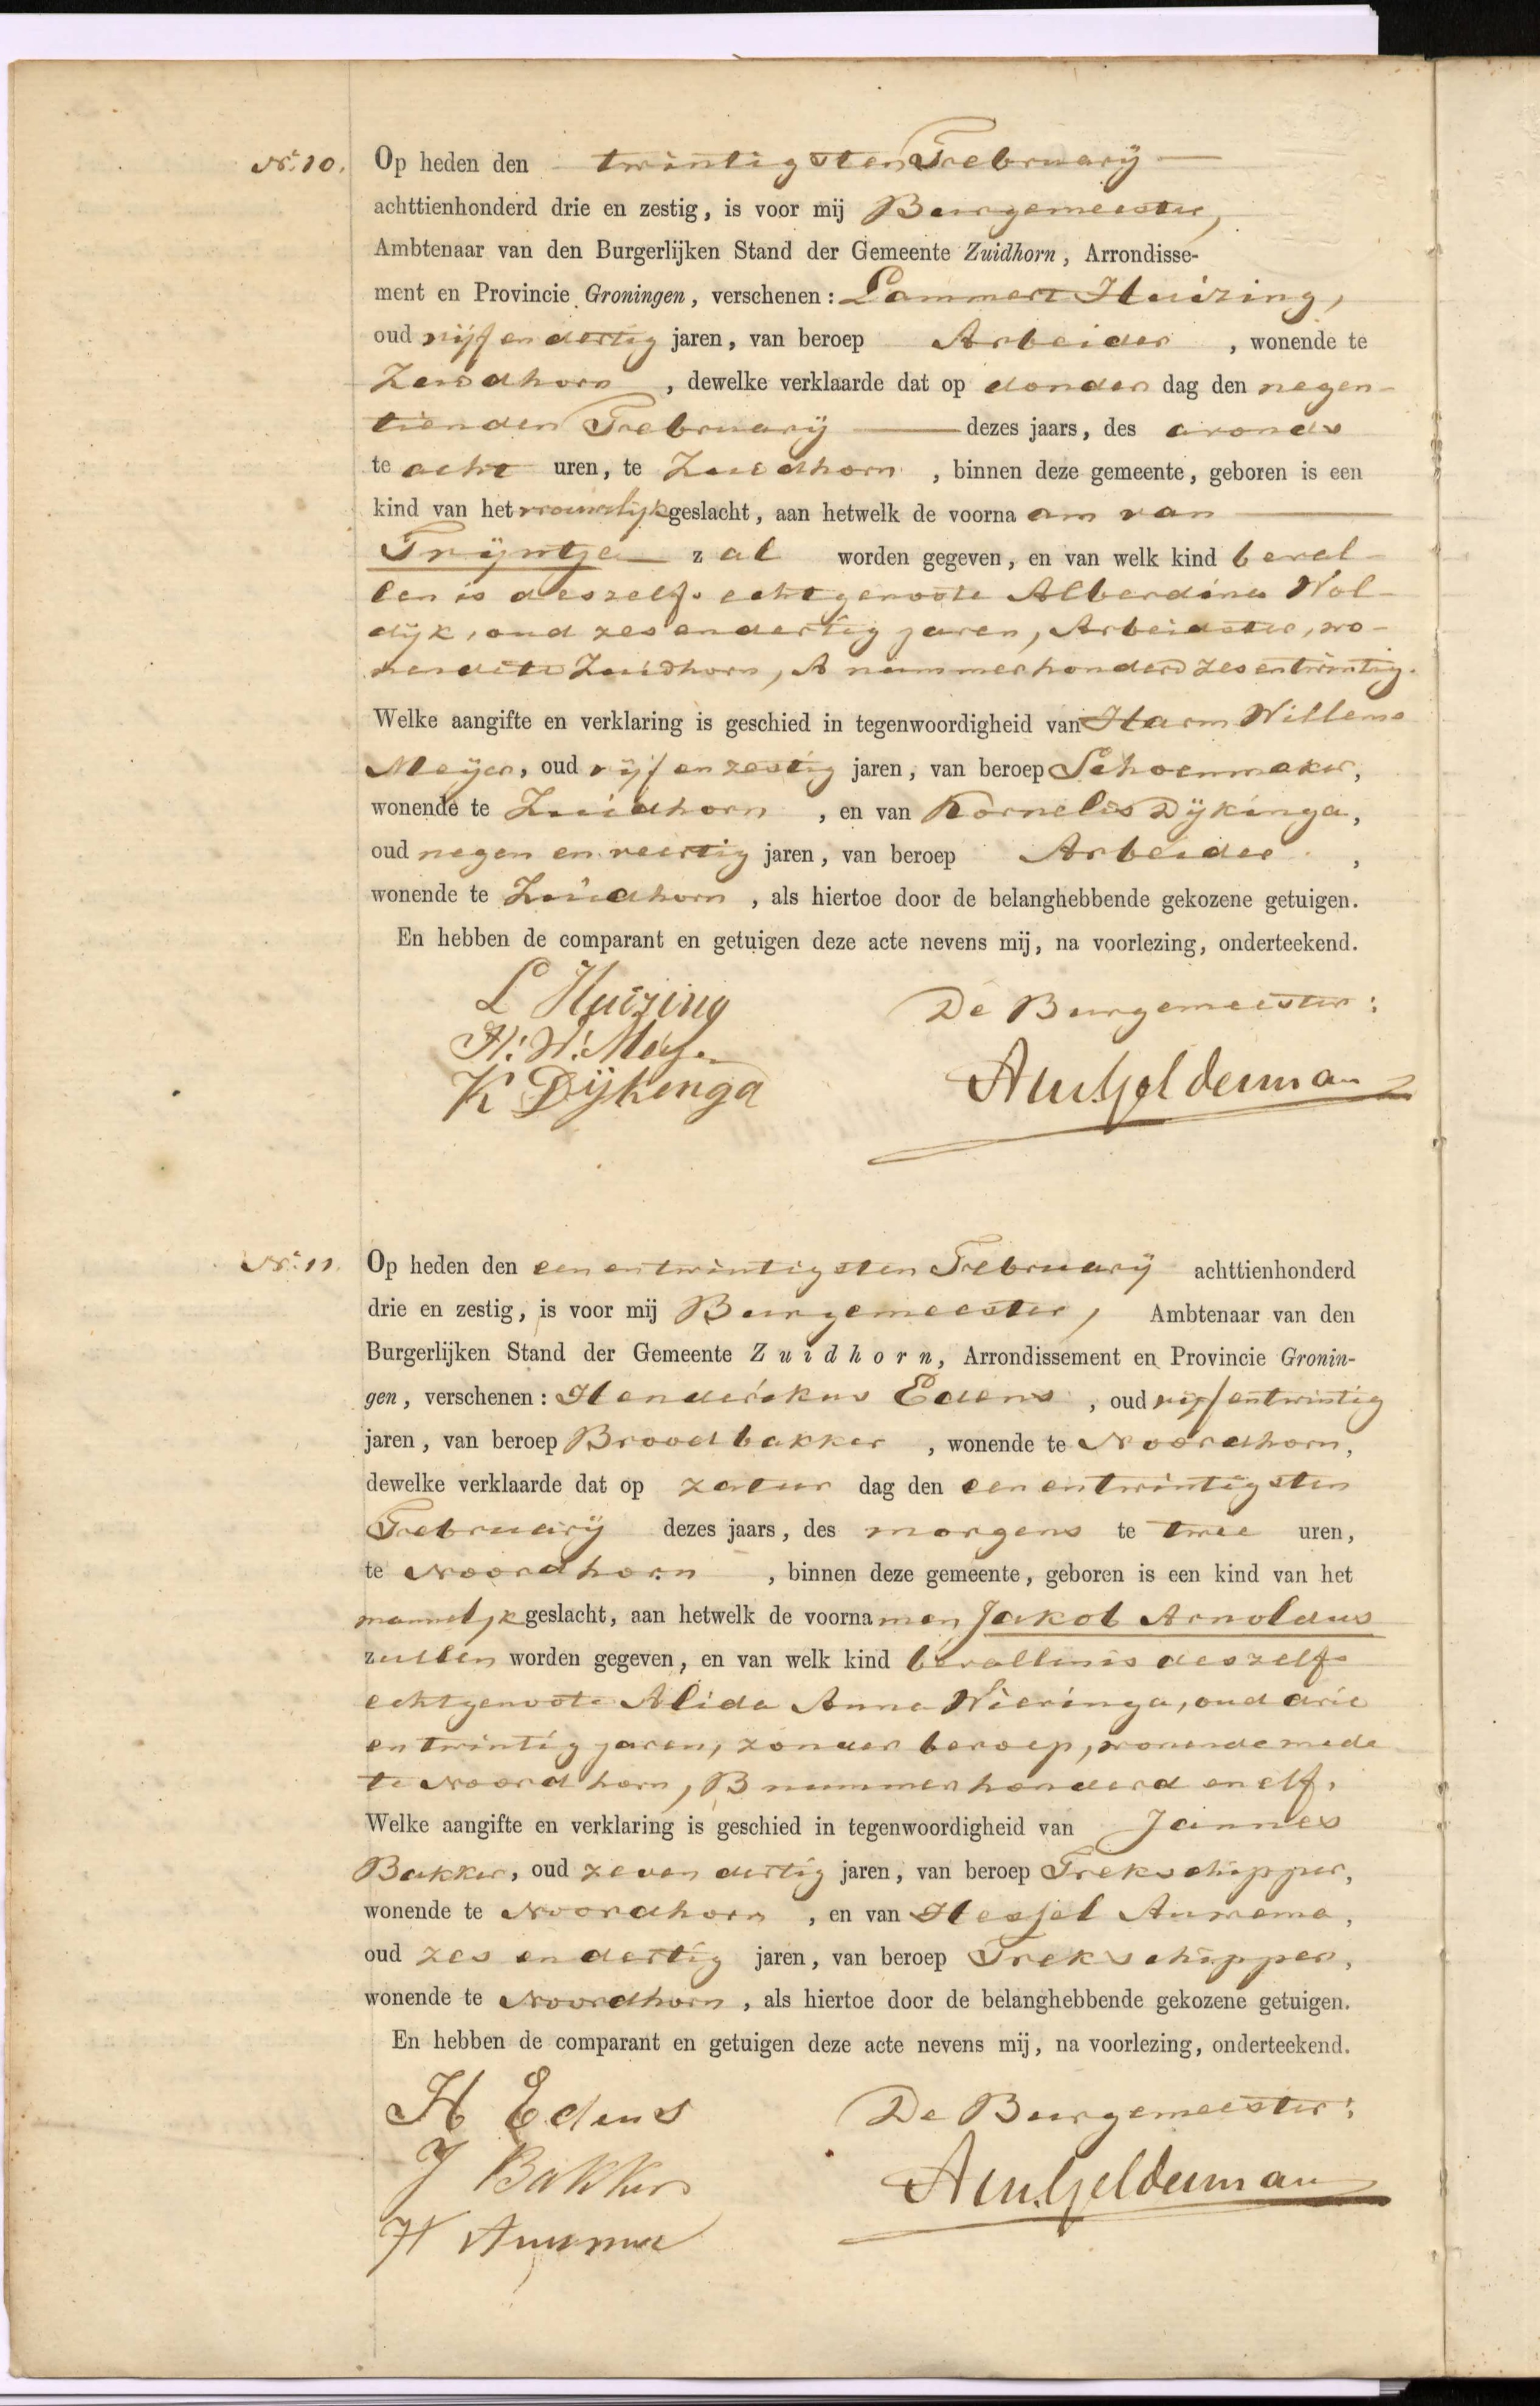 No. 10. Op heden den twintigsten February
achttienhonderd drie en zestig, is voor mij Burgemeester,
Ambtenaar van den Burgerlijken Stand der Gemeente Zuidhorn, Arrondisse-
ment en Provincie Groningen, verschenen: Lammert Huizing,
oud vijf en dertig jaren, van beroep Arbeider, wonende te
Zuidhorn, dewelke verklaarde dat op donder dag den negen-
tienden February dezes jaars, des avonds
te acht uren, te Zuidhorn, binnen deze gemeente, geboren is een
kind van het vrouwelijk geslacht, aan hetwelk de voorna am van
Tryntje zal worden gegeven, en van welk kind beval-
len is deszelfs echtgenoote Alberdina Wol-
dijk, oud zes en dertig jaren, Arbeidster, wo-
nende te Zuidhorn, A nummer honderd zes en twintig.
Welke aangifte en verklaring is geschied in tegenwoordigheid van Harm Willems
Meijer, oud vijf en zestig jaren, van beroep Schoenmaker,
wonende te Zuidhorn, en van Kornelis Dijkinga,
oud negen en veertig jaren, van beroep Arbeider,
wonende te Zuidhorn, als hiertoe door de belanghebbende gekozene getuigen.
En hebben de comparant en getuigen deze acte nevens mij, na voorlezing, onderteekend.
L Huizing De Burgemeester:
H. W. Meijer
K Dijkenga Geldeman
No. 11. Op heden den een en twintigsten February achttienhonderd
drie en zestig, is voor mij Burgemeester, Ambtenaar van den
Burgerlijken Stand der Gemeente Zuidhorn, Arrondissement en Provincie Gronin-
gen, verschenen: Henderikus Edens, oud vijf en twintig
jaren, van beroep Broodbakker, wonende te Noordhorn,
dewelke verklaarde dat op zatur dag den een en twintigsten
February dezes jaars, des morgens te twee uren,
te Noordhorn, binnen deze gemeente, geboren is een kind van het
mannelijk geslacht, aan hetwelk de voorna men Jakob Arnoldus
zullen worden gegeven, en van welk kind bevallen is deszelfs
echtgenoote Alida Anna Wieringa, oud drie
en twintig jaren, zonder beroep, wonende mede
te Noordhorn, B nummer honderd en elf.
Welke aangifte en verklaring is geschied in tegenwoordigheid van Jannes
Bakker, oud zeven dertig jaren, van beroep Trekschipper,
wonende te Noordhorn, en van Hessel Auwema,
oud zes en dertig jaren, van beroep Trekschipper,
wonende te Noordhorn, als hiertoe door de belanghebbende gekozene getuigen.
En hebben de comparant en getuigen deze acte nevens mij, na voorlezing, onderteekend.
H Edens De Burgemeester:
J Bakker Geldeman
H Auwema